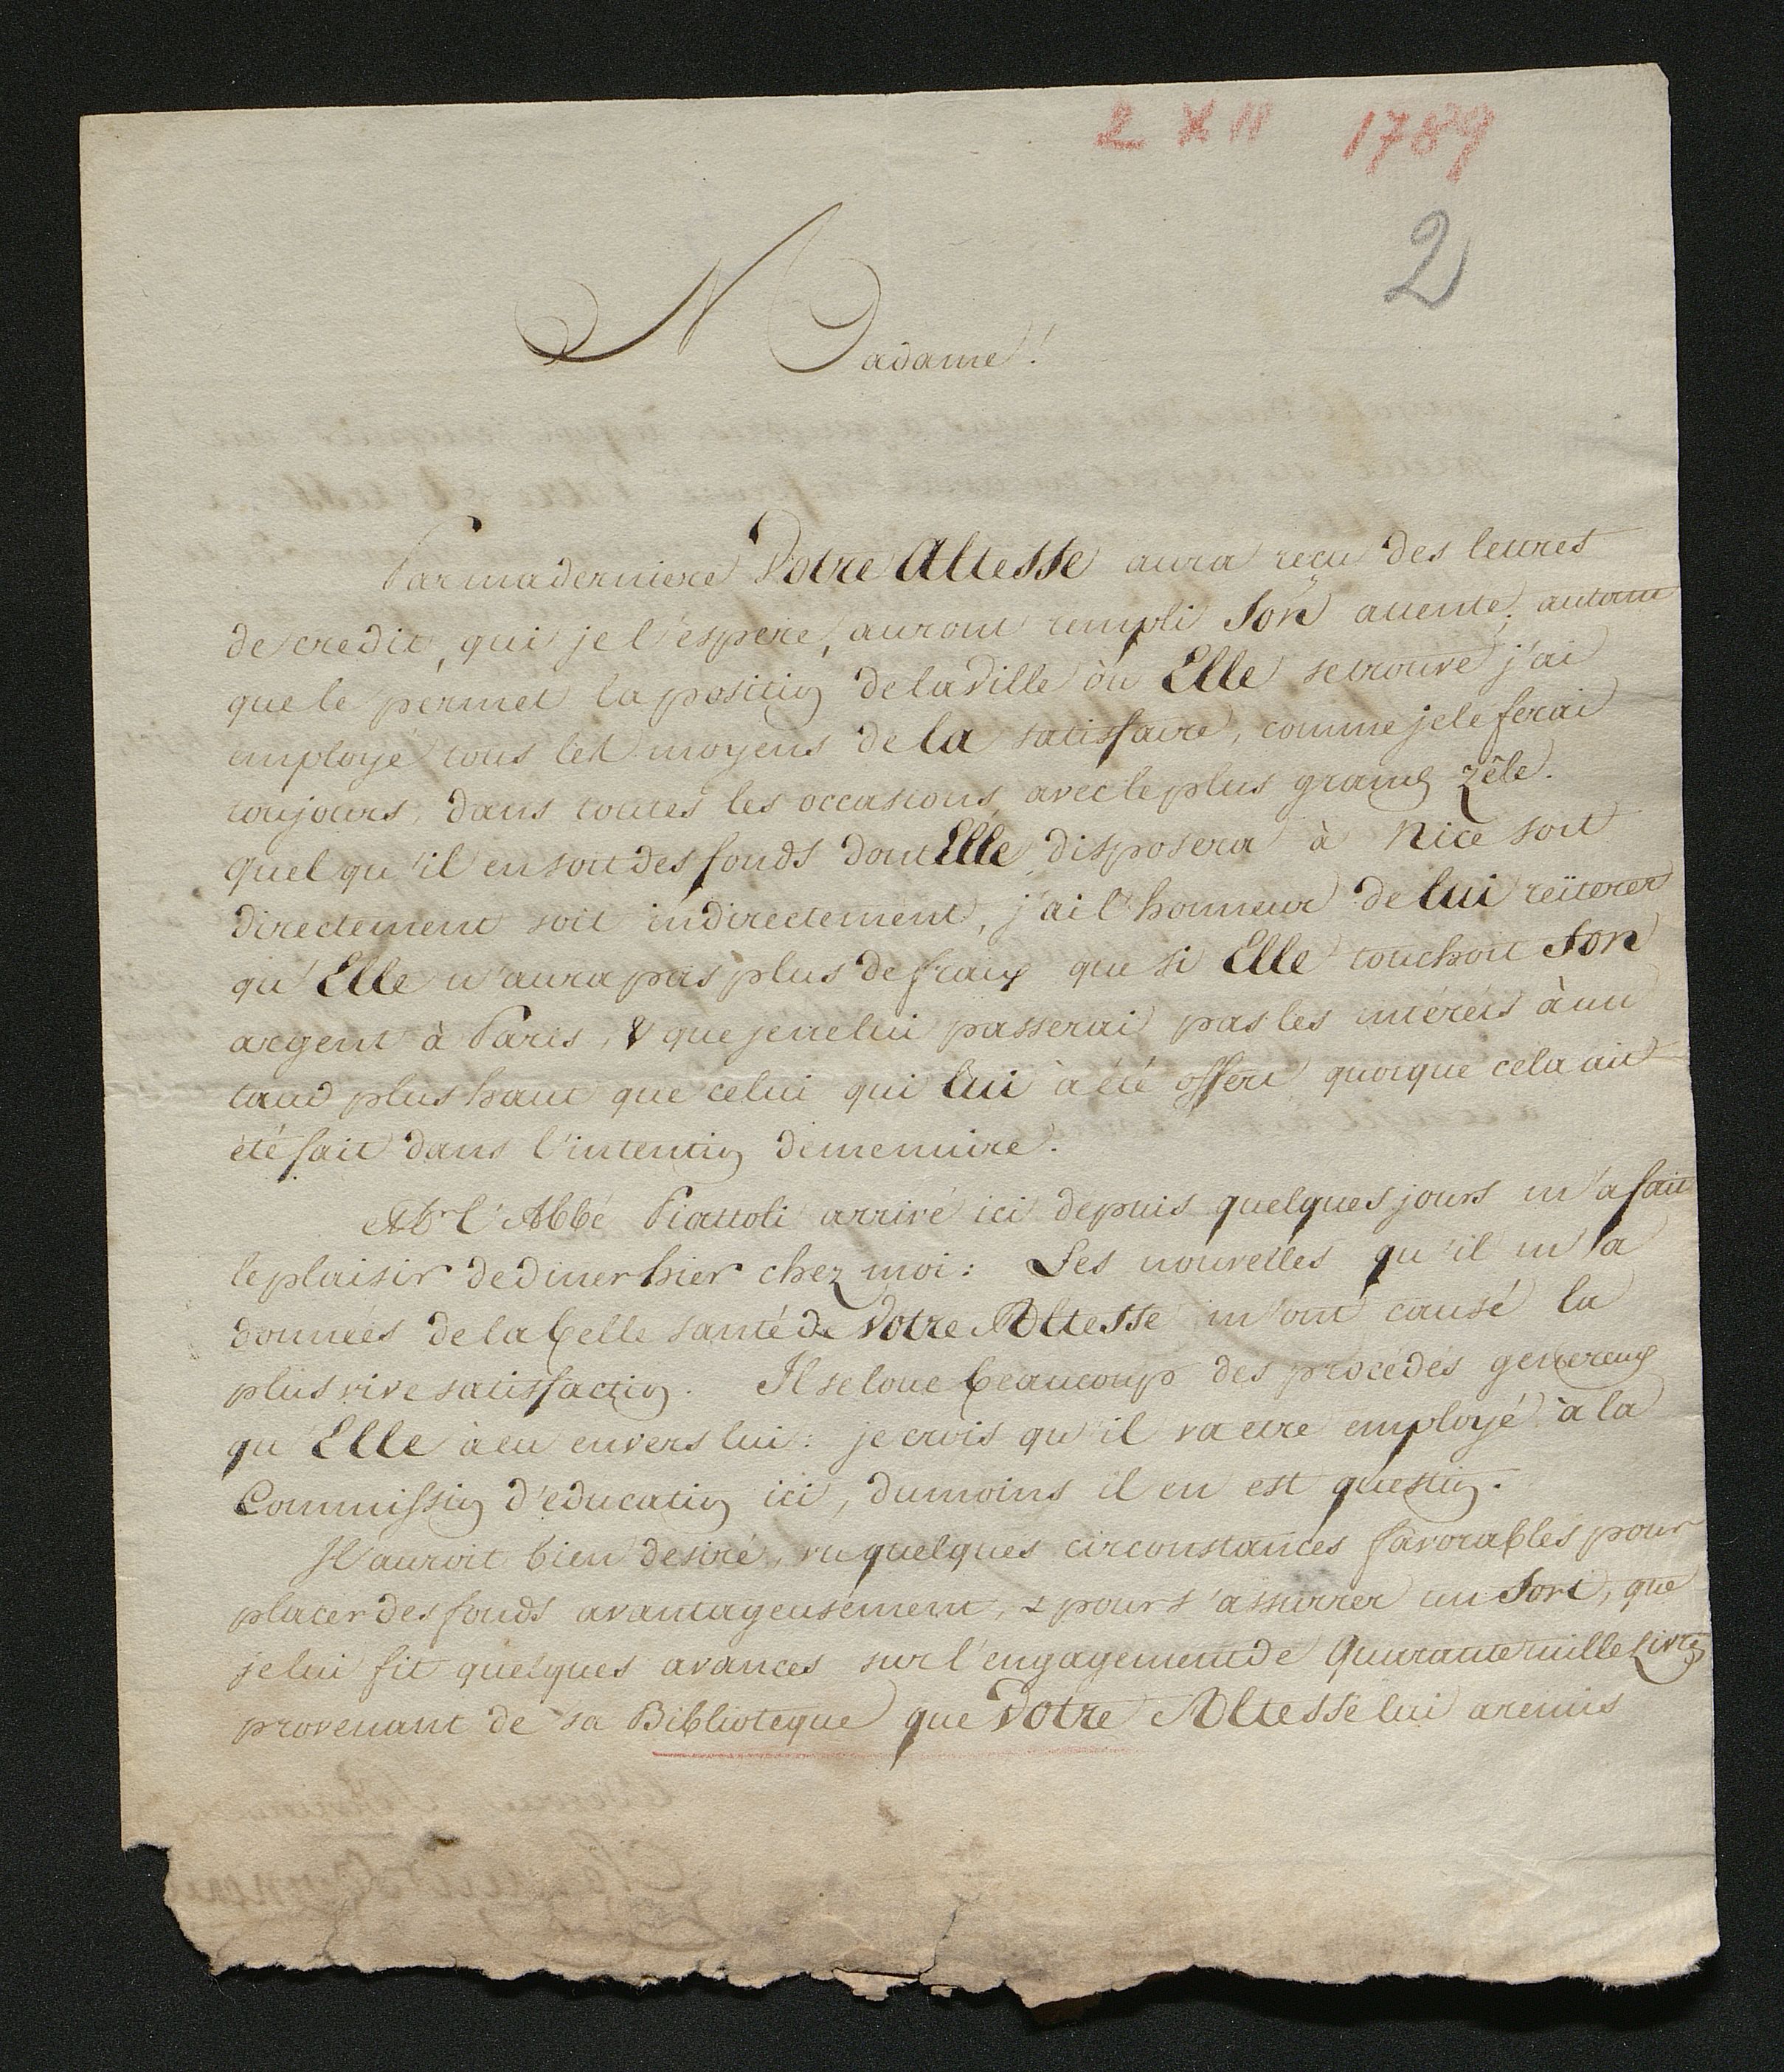 2 XII 1789
2
Madame!
Par ma derniere Votre Altesse aura reçu des lettres
de credit, qui je l'espere, auront rempli Son attente, autant
que le permet la position de la Ville où Elle se trouve j'ai
employé tous les moyens de la satisfaire, comme je le ferai
toujours, dans toutes les occasions avec le plus grand zêle.
quel qu'il en soit des fonds dont Elle disposera à Nice soit
directement soit indirectement, j'ai l'honneur de lui reïterer
qu'Elle n'aura pas plus de fraix que si Elle touchoit Son
argent à Paris, & que je ne lui passerai pas les intérêts à un
taud plus haut que celui qui lui à été offert quoique cela ait
été fait dans l'intention de me nuire.
Mr l'Abbé Piattoli arrivé ici depuis quelques jours m'a fait
le plaisir de diner hier chez moi: Les nouvelles qu'il m'a
données de la belle santé de Votre Altesse m'ont causé la
plus vive satisfaction. Il se loue beaucoup des procédés genereux
qu'Elle à eu envers lui: je crois qu'il va etre employé à la
Commission d'education ici, du moins il en est question.
Il auroit bien desiré, vu quelques circonstances favorables pour
placer des fonds avantageusement, & pour s'assurrer un Sort, que
je lui fit quelques avances sur l'engagement de Quarante mille Livres
provenant de sa Biblioteque que Votre Altesse lui a remis